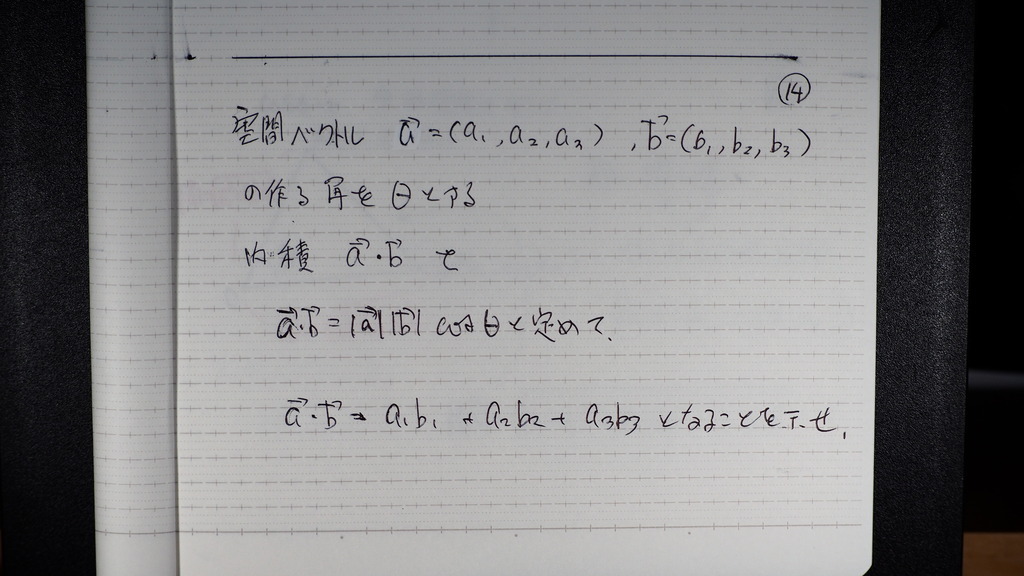 ⑭
空間ベクトル a⃗=(a₁,a₂,a₃),b⃗=(b₁,b₂,b₃)
の作る角を θとする
内積 a⃗・b⃗ を
a⃗・b⃗=|a⃗||b⃗| cosθと定めて、
a⃗・b⃗=a₁b₁+a₂b₂+a₃b₃となることを示せ.